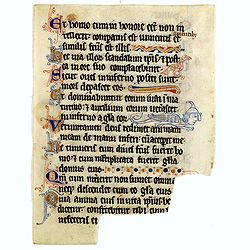 Et homo cum in honore eſſet non in
tellexit comparatus eſt iumentis et
ſimilis factus eſt illis
ec uia illorum ſcandalum ipſis et poſt
ore ſuo complacebunt
Sicut oues in inferno poſiti ſunt
mors depaſcet eos
Et dominabuntur eorum iuſti in ma
tutino et auxilium eorum ueteraſcet
inferno a gloria eorum
Verumtamen deus redimet animam
meam de manu inferi cum acceperit me
Ne timueris cum diues factus fuerit ho
mo et cum multiplicata fuerit gloria
domus eius
Qm cum interierit non ſumet omnia
neq deſcendet cum eo gloria eius
Quia anima eius in uita ipſius be
dicetur confitebitur tibi cum
feceris ei